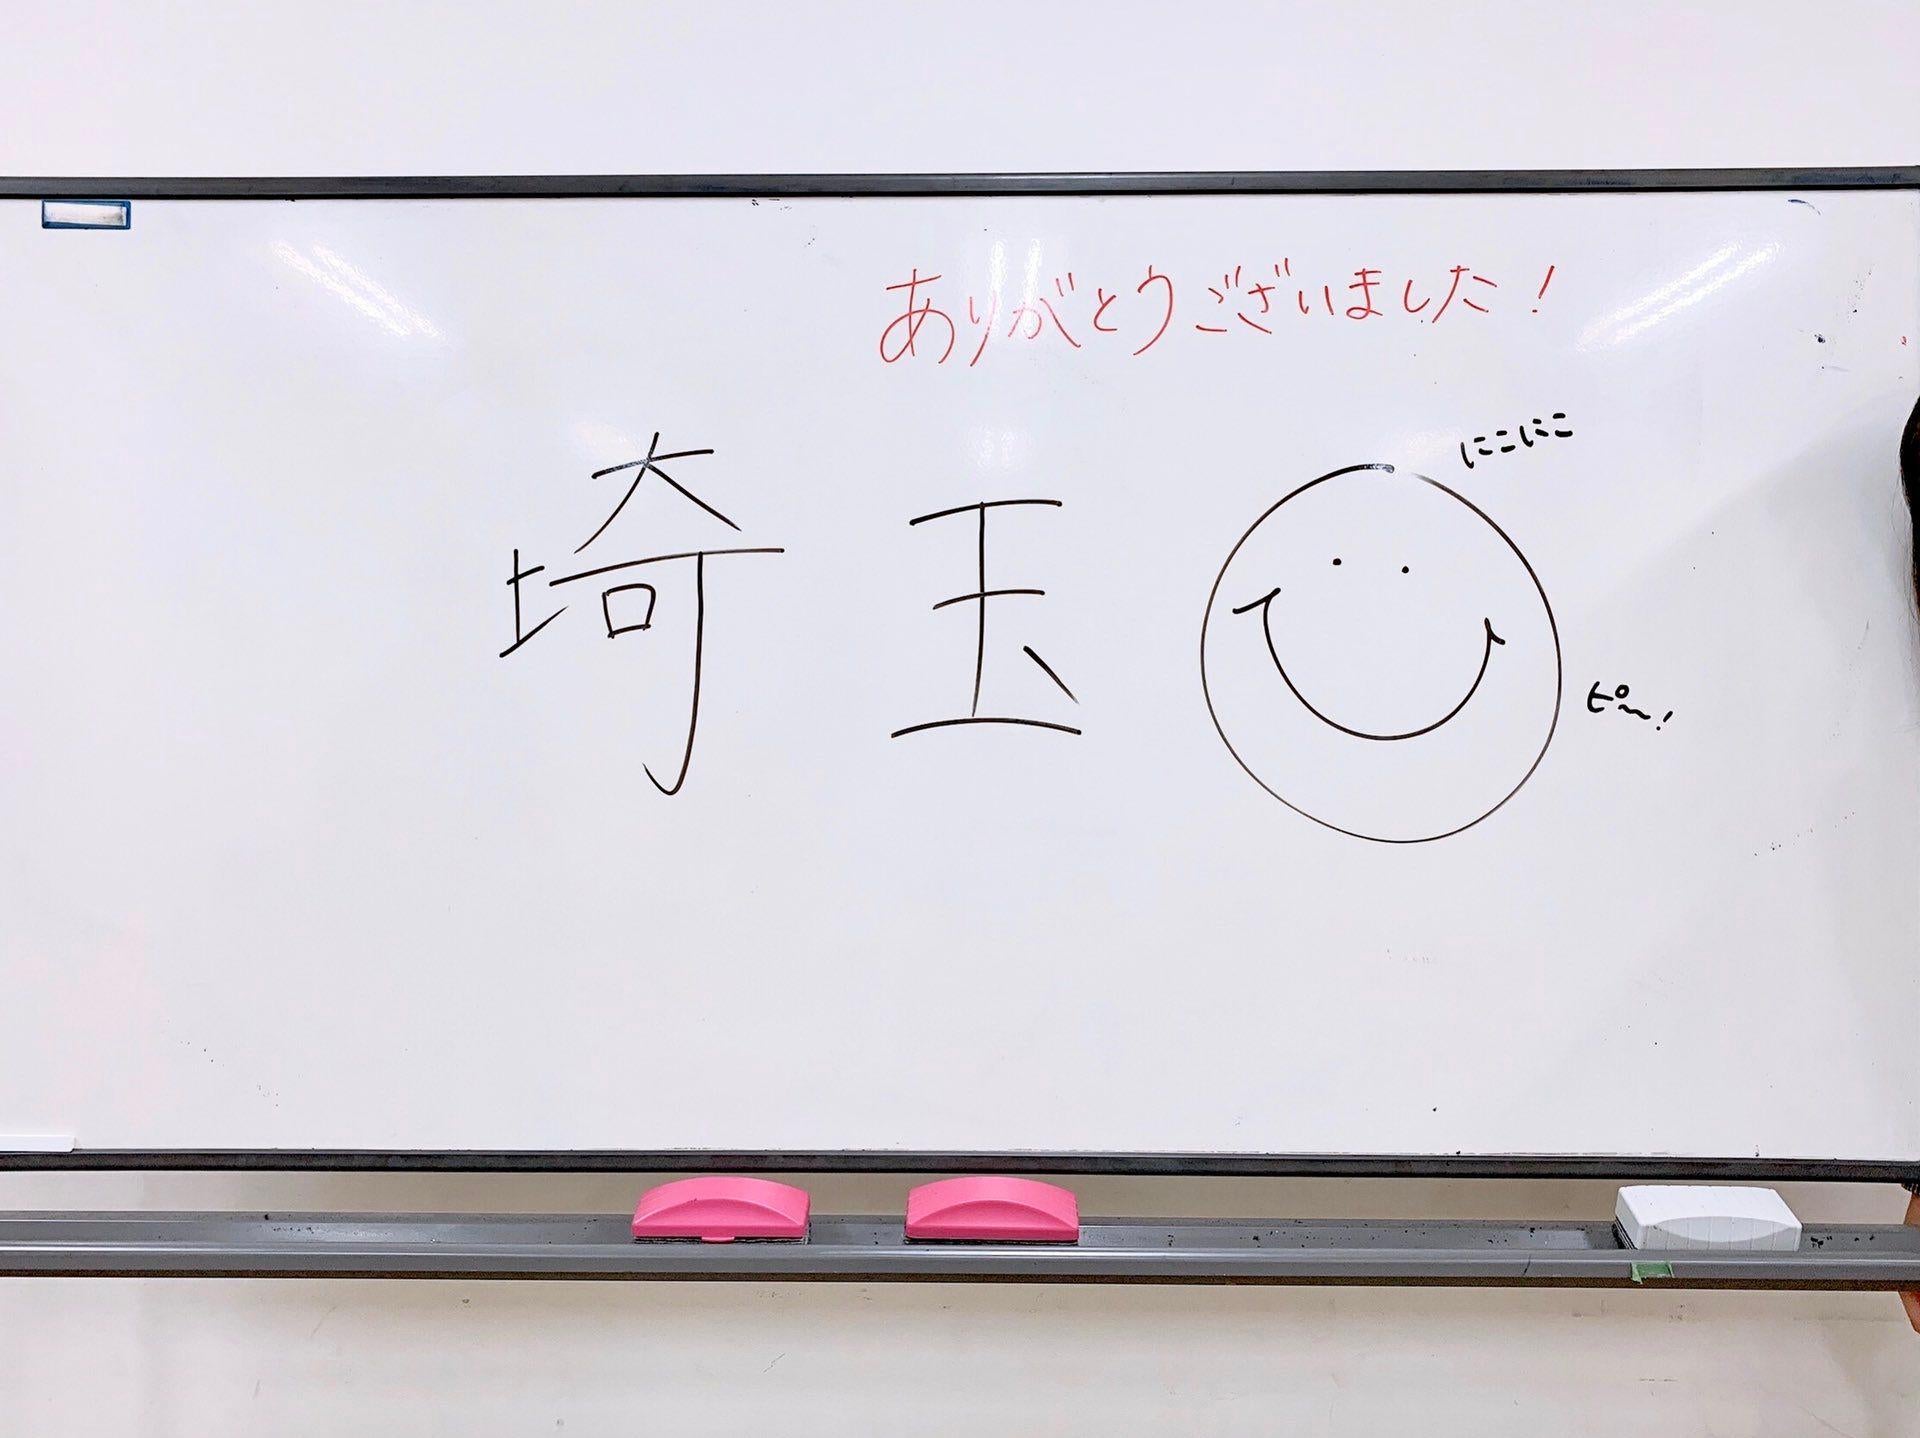 ありがとうございました!
にこにこ
埼玉
ピ〜!